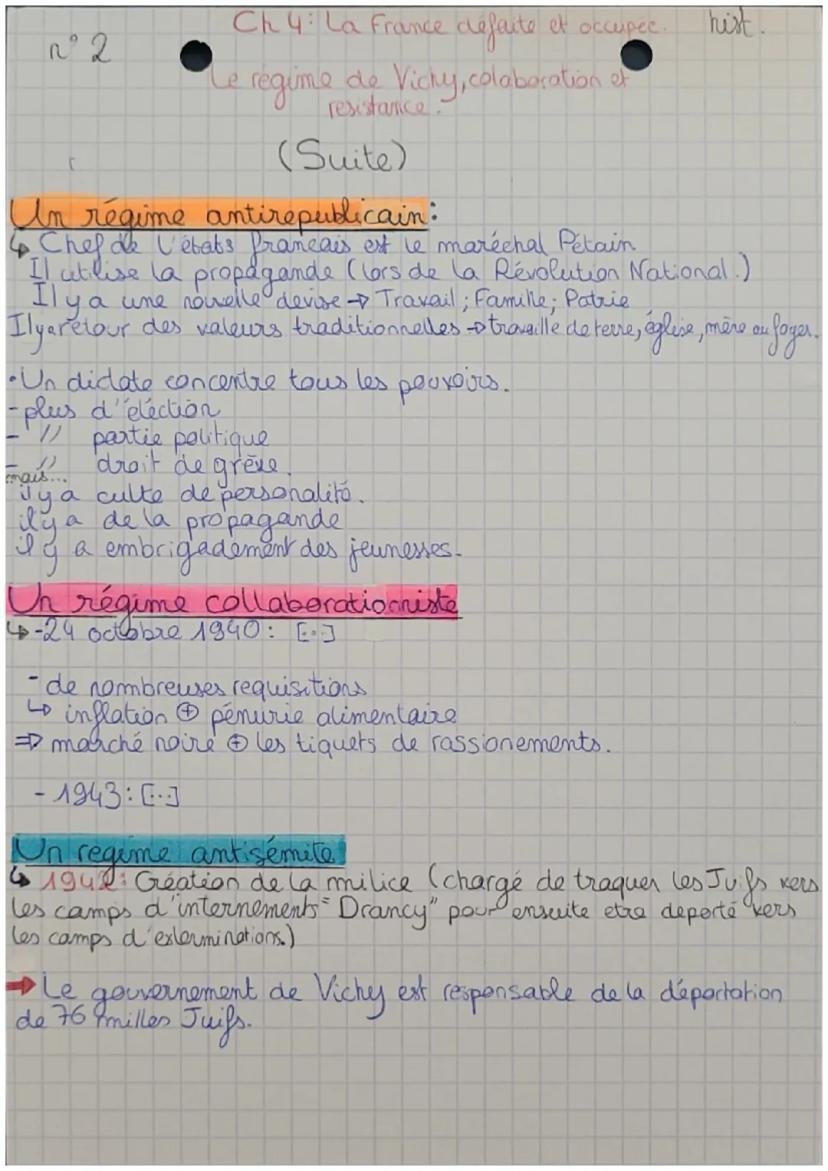 Ch 4: La France défaite et occupée. hist.
n° 2
Le régime de Vichy, colaboration et
resistance.
(Suite)
Un régime antirepublicain:
↳ Chef de l'états francais est le maréchal Pétain
Il utilise la propagande (lors de la Révolution National.)
Il y a une nouvelle devise → Travail; Famille; Patrie
Il y a retour des valeurs traditionnelles → travaille de terre, église, mère au foyer.
• Un dictate concentre tous les pouvoirs.
- plus d'éléction
- // partie politique
- // droit de grève.
mais...
il y a culte de personalité.
il y a de la propagande
il y a embrigadement des jeunesses.
Un régime collaborationniste
↳ - 24 octobre 1940: [...]
- de nombreuses requisitions
↳ inflation ⊕ pénurie alimentaire
⇒ marché noire ⊕ les tiquets de rassionements.
- 1943: [...]
Un regime antisémite
↳ 1942: Création de la milice (chargé de traquer les Juifs vers
les camps d'internements "Drancy" pour ensuite etre deporté vers
les camps d'exterminations.)
→ Le gouvernement de Vichy est responsable de la déportation
de 76 milles Juifs.